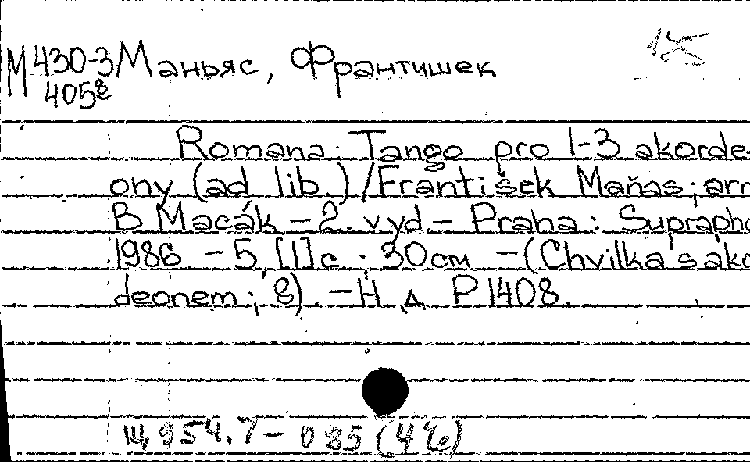 М430-3 Маньяс, Франтишек
405
Romana: Tango pro 1-3 akorde-
ony (ad lib.) / František Maňas; arr
B. Macák - 2. vyd - Praha: Supraph
1986 - 5 [1] с. 30 см - (Chvilka s ako
deonem; 8). - Н. д. P 1408.
Щ954.7-